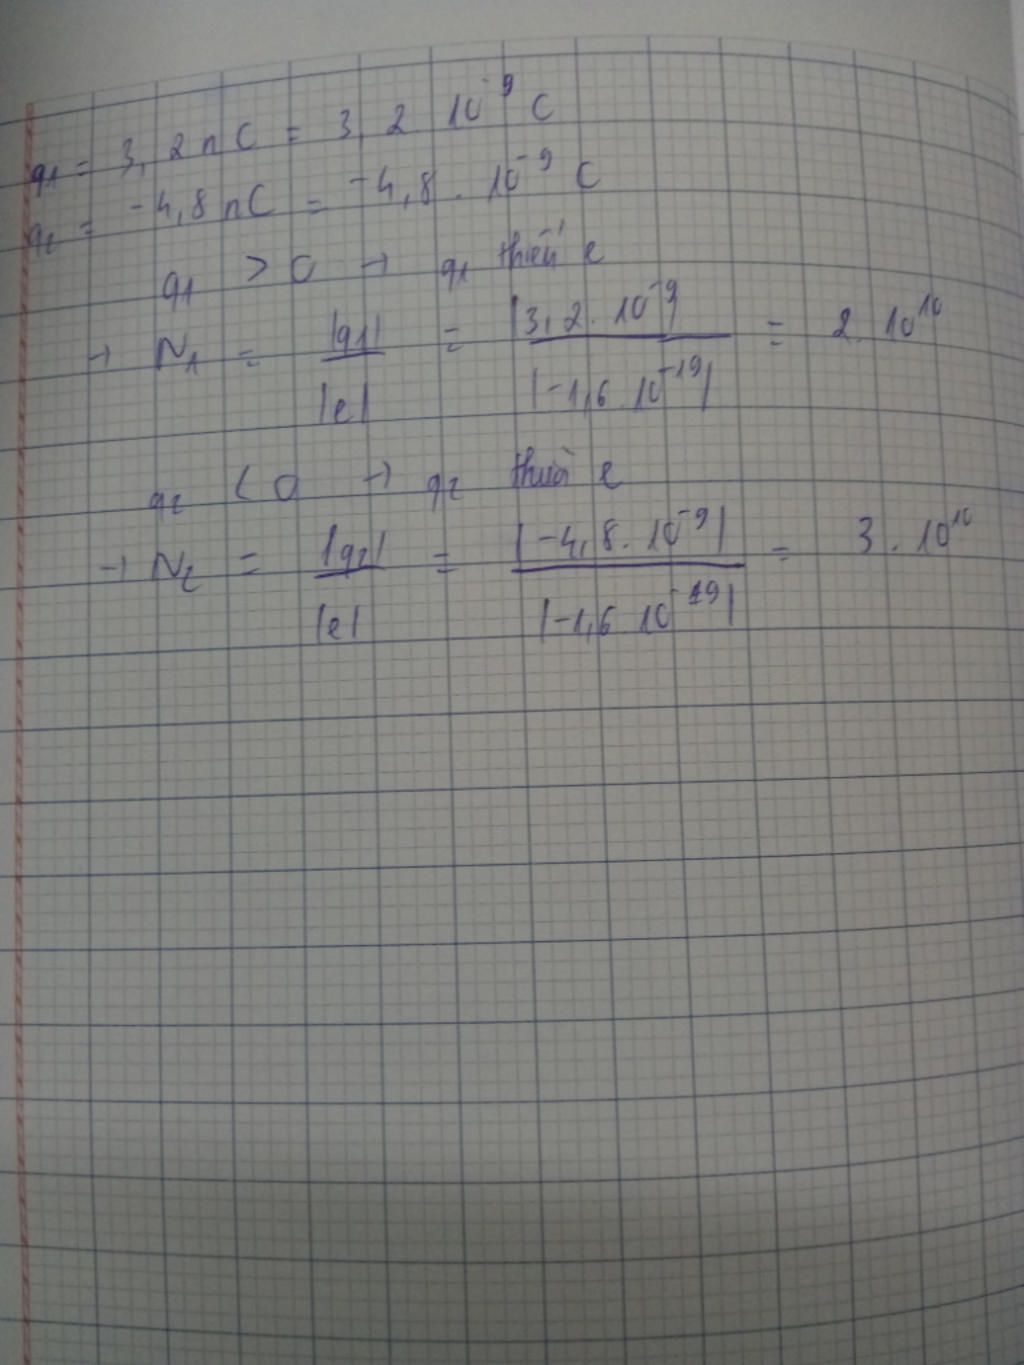 q1 = 3,2 nC = 3,2 10^-9 C
q2 = -4,8 nC = -4,8 . 10^-9 C
q1 > 0 → q1 thiếu e
→ N1 = |q1| / |e| = |3,2. 10^-9| / |-1,6. 10^-19| = 2. 10^10
q2 < 0 → q2 thừa e
→ N2 = |q2| / |e| = |-4,8. 10^-9| / |-1,6 10^-19| = 3. 10^10